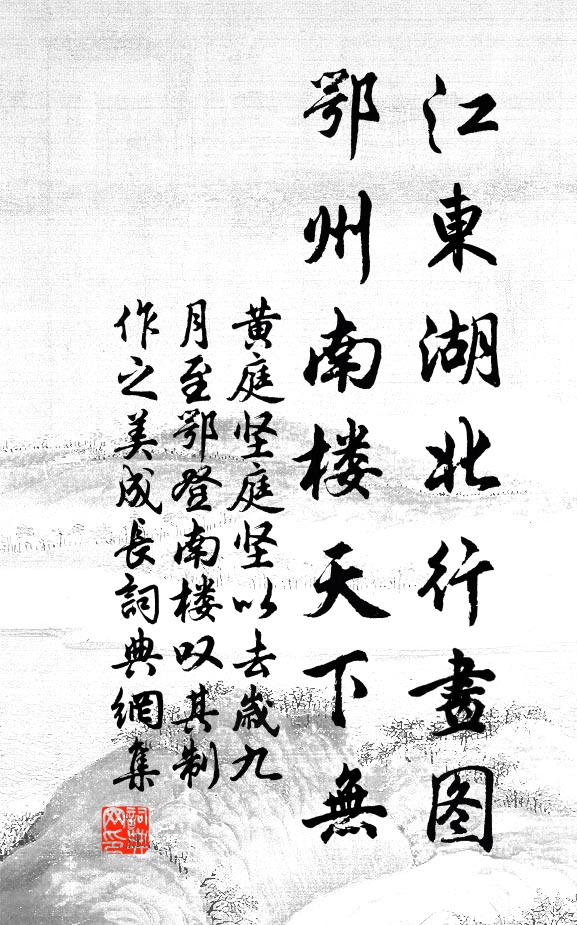 江東湖北行畫图
鄂州南楼天下無
黄庭坚庭坚以去歲九
月至鄂登南楼叹其制
作之美成长詞典網集
詞典
网印